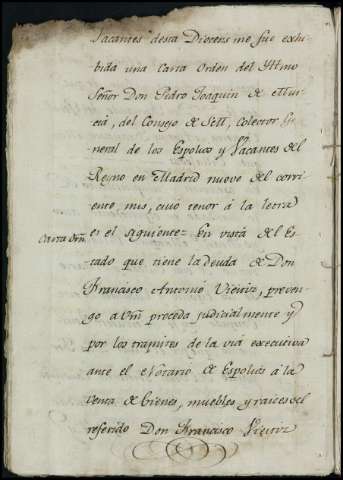 Vacantes desta Diocesis me fue exhi-
bida una Carta Orden del Yltmo
Señor Don Pedro Joaquin de Mur-
cia, del Consejo de S. M., Colector Ge-
neral de los Espolios y Vacantes del
Reyno en Madrid nueve del corri-
ente mes, cuio tenor á la letra
Carta Orn
es el siguiente: En vista del Es-
tado que tiene la deuda de Don
Francisco Antonio Vieitiz, preven-
go a Vm proceda judicialmente y
por los tramites de la via executiva
ante el Notario de Espolios á la
venta de bienes, muebles y raices del
referido Don Francisco Vieitiz